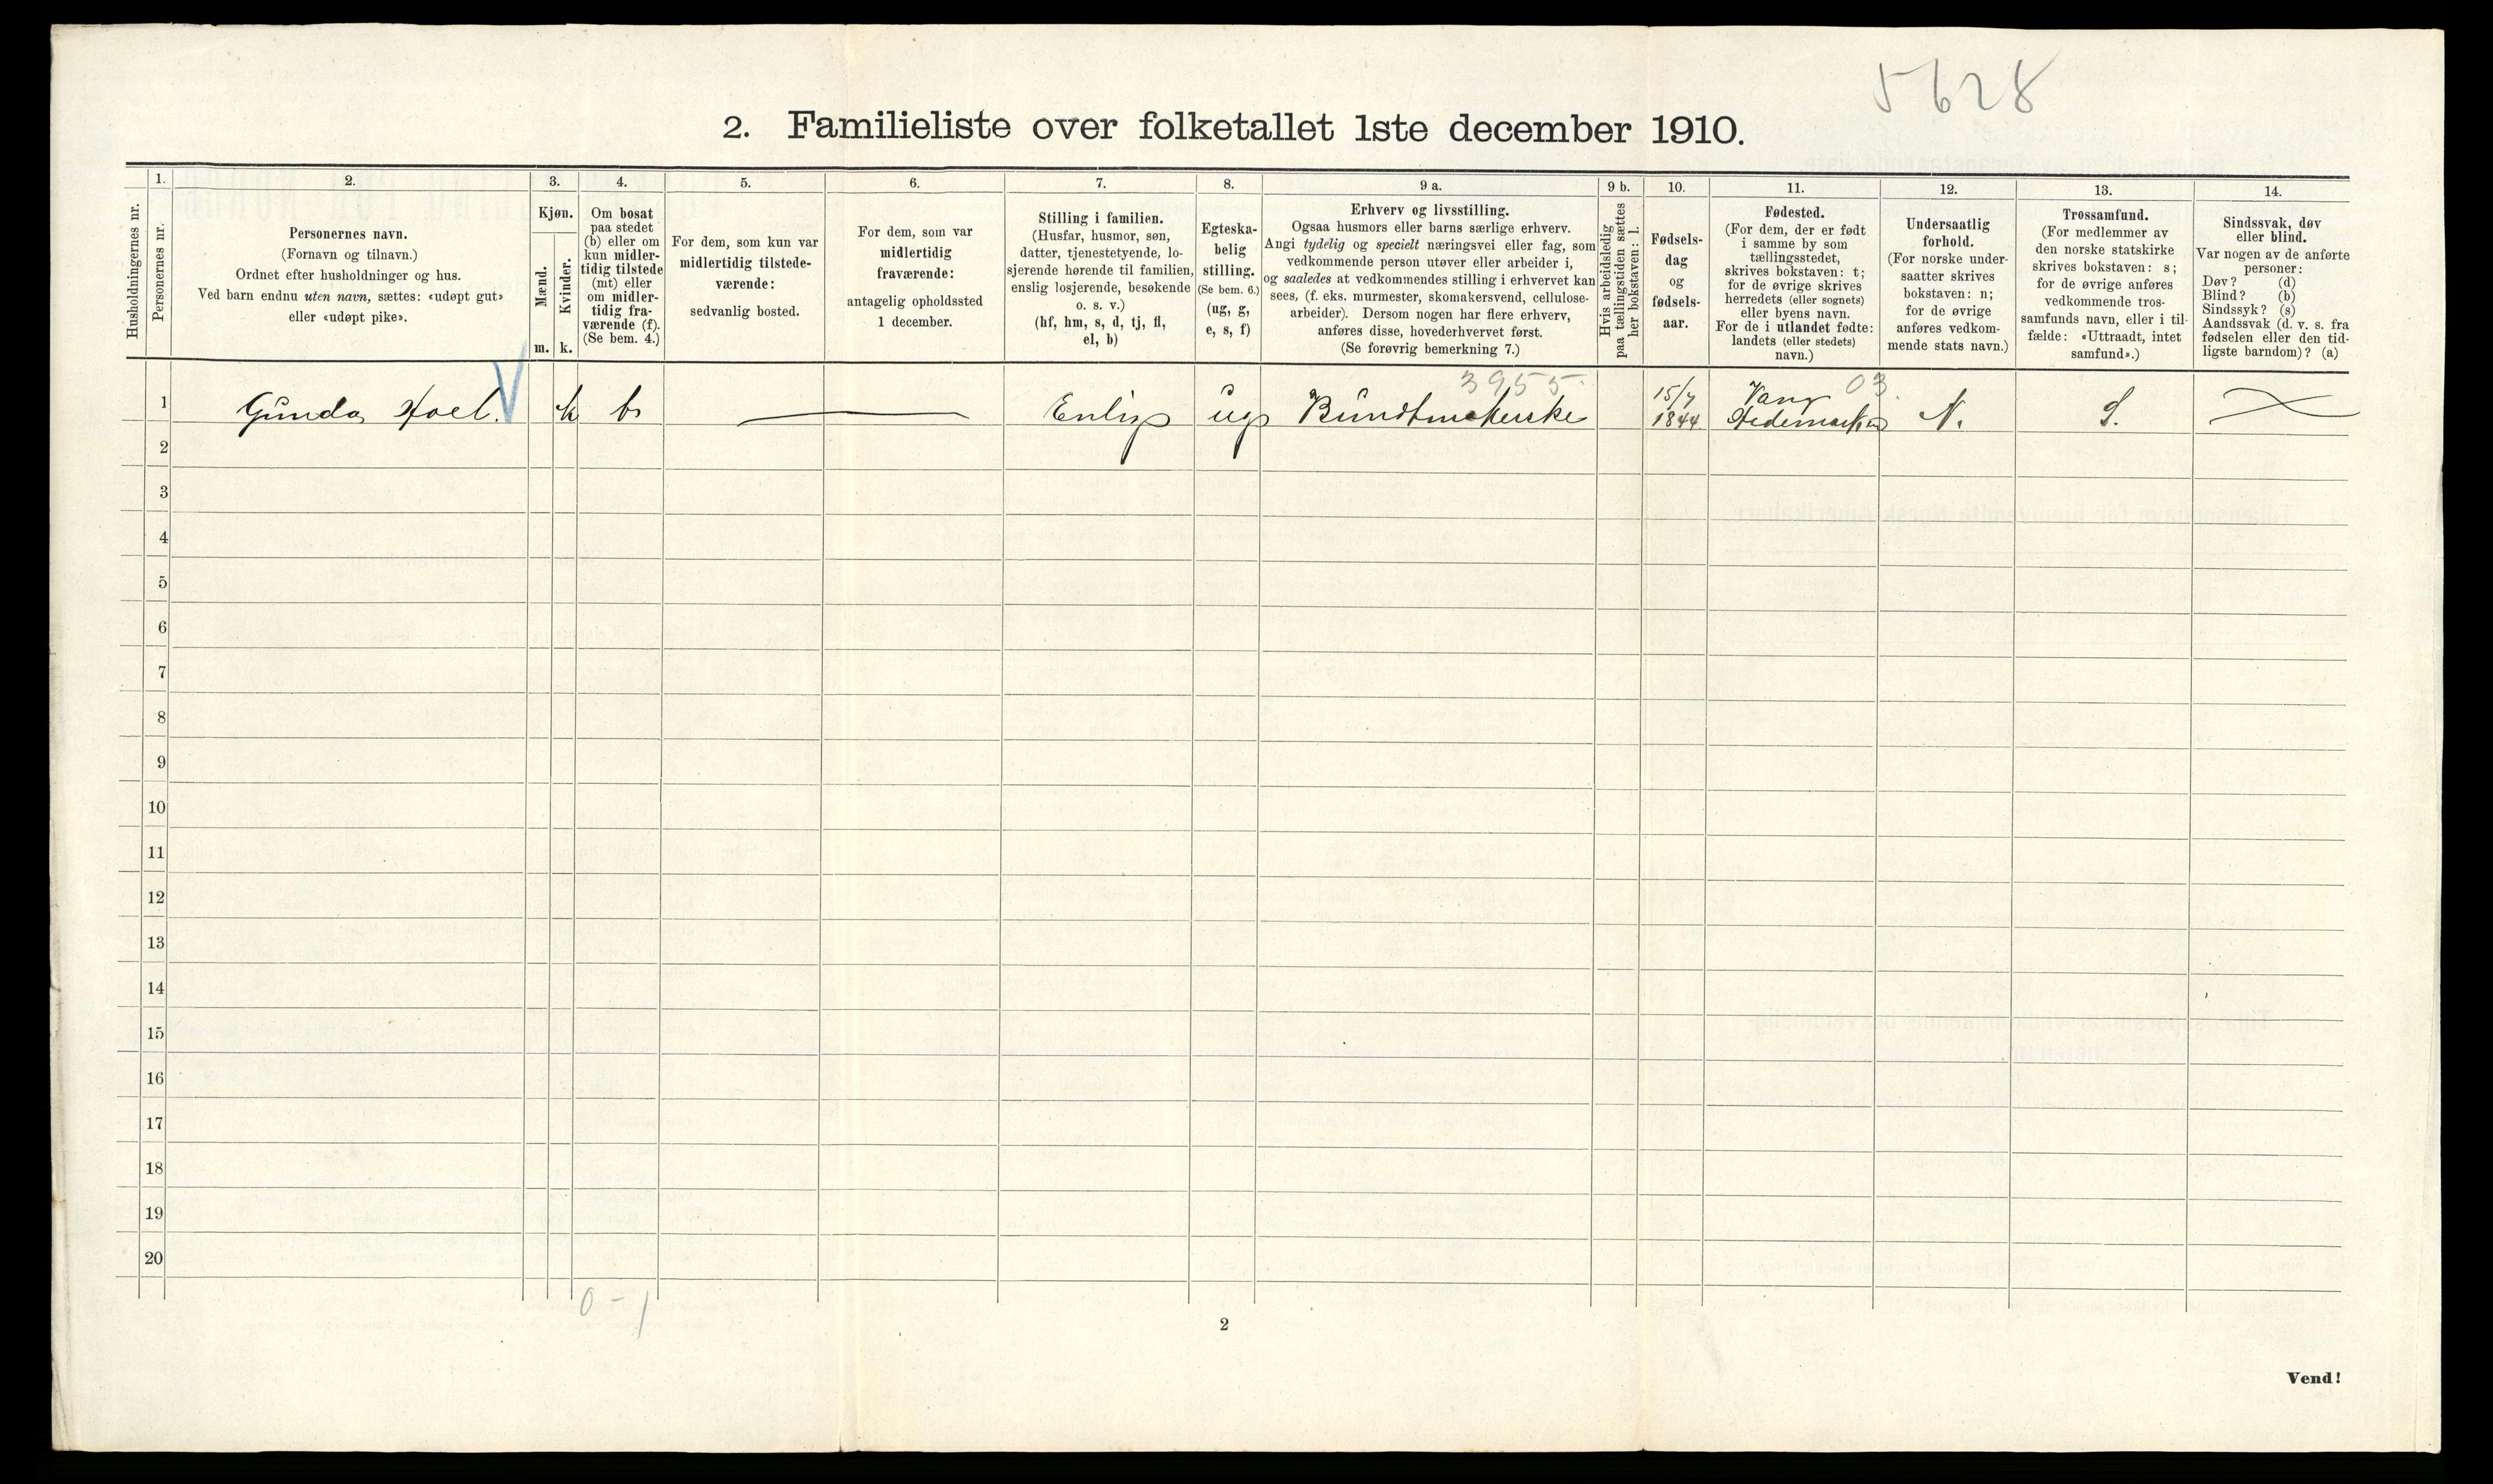 5628
2. Familieliste over folketallet 1ste december 1910.
Husholdningernes nr.
1.
Personernes nr.
2.
Personernes navn.
(Fornavn og tilnavn.)
Ordnet efter husholdninger og hus.
Ved barn endnu uten navn, sættes: «udøpt gut»
eller «udøpt pike».
3.
Kjøn.
Mænd.
Kvinder.
m. k.
4.
Om bosat
paa stedet
(b) eller om
kun midler-
tidig tilstede
(mt) eller
om midler-
tidig fra-
værende (f).
(Se bem. 4.)
5.
For dem, som kun var
midlertidig tilstede-
værende:
sedvanlig bosted.
6.
For dem, som var
midlertidig
fraværende:
antagelig opholdssted
1 december.
7.
Stilling i familien.
(Husfar, husmor, søn,
datter, tjenestetyende, lo-
sjerende hørende til familien,
enslig losjerende, besøkende
o. s. v.)
(hf, hm, s, d, tj, fl,
el, b)
8.
Egteska-
belig
stilling.
(Se bem. 6.)
(ug, g,
e, s, f)
9 a.
Erhverv og livsstilling.
Ogsaa husmors eller barns særlige erhverv.
Angi tydelig og specielt næringsvei eller fag, som
vedkommende person utøver eller arbeider i,
og saaledes at vedkommendes stilling i erhvervet kan
sees, (f. eks. murmester, skomakersvend, cellulose-
arbeider). Dersom nogen har flere erhverv,
anføres disse, hovederhvervet først.
(Se forøvrig bemerkning 7.)
9 b.
Hvis arbeidsledig
paa tællingstiden sættes
her bokstaven: l.
10.
Fødsels-
dag
og
fødsels-
aar.
11.
Fødested.
(For dem, der er født
i samme by som
tællingsstedet,
skrives bokstaven: t;
for de øvrige skrives
herredets (eller sognets)
eller byens navn.
For de i utlandet fødte:
landets (eller stedets)
navn.)
12.
Undersaatlig
forhold.
(For norske under-
saatter skrives
bokstaven: n;
for de øvrige
anføres vedkom-
mende stats navn.)
13.
Trossamfund.
(For medlemmer av
den norske statskirke
skrives bokstaven: s;
for de øvrige anføres
vedkommende tros-
samfunds navn, eller i til-
fælde: «Uttraadt, intet
samfund».)
14.
Sindssvak, døv
eller blind.
Var nogen av de anførte
personer:
Døv? (d)
Blind? (b)
Sindssyk? (s)
Aandssvak (d. v. s. fra
fødselen eller den tid-
ligste barndom)? (a)
3955 03
1 Gunda Hoel. k b Enlig ug Bundtmakerske 15/7 1844 Vang Hedemarken N. S.
2
3
4
5
6
7
8
9
10
11
12
13
14
15
16
17
18
19
20
0 - 1
2
Vend!